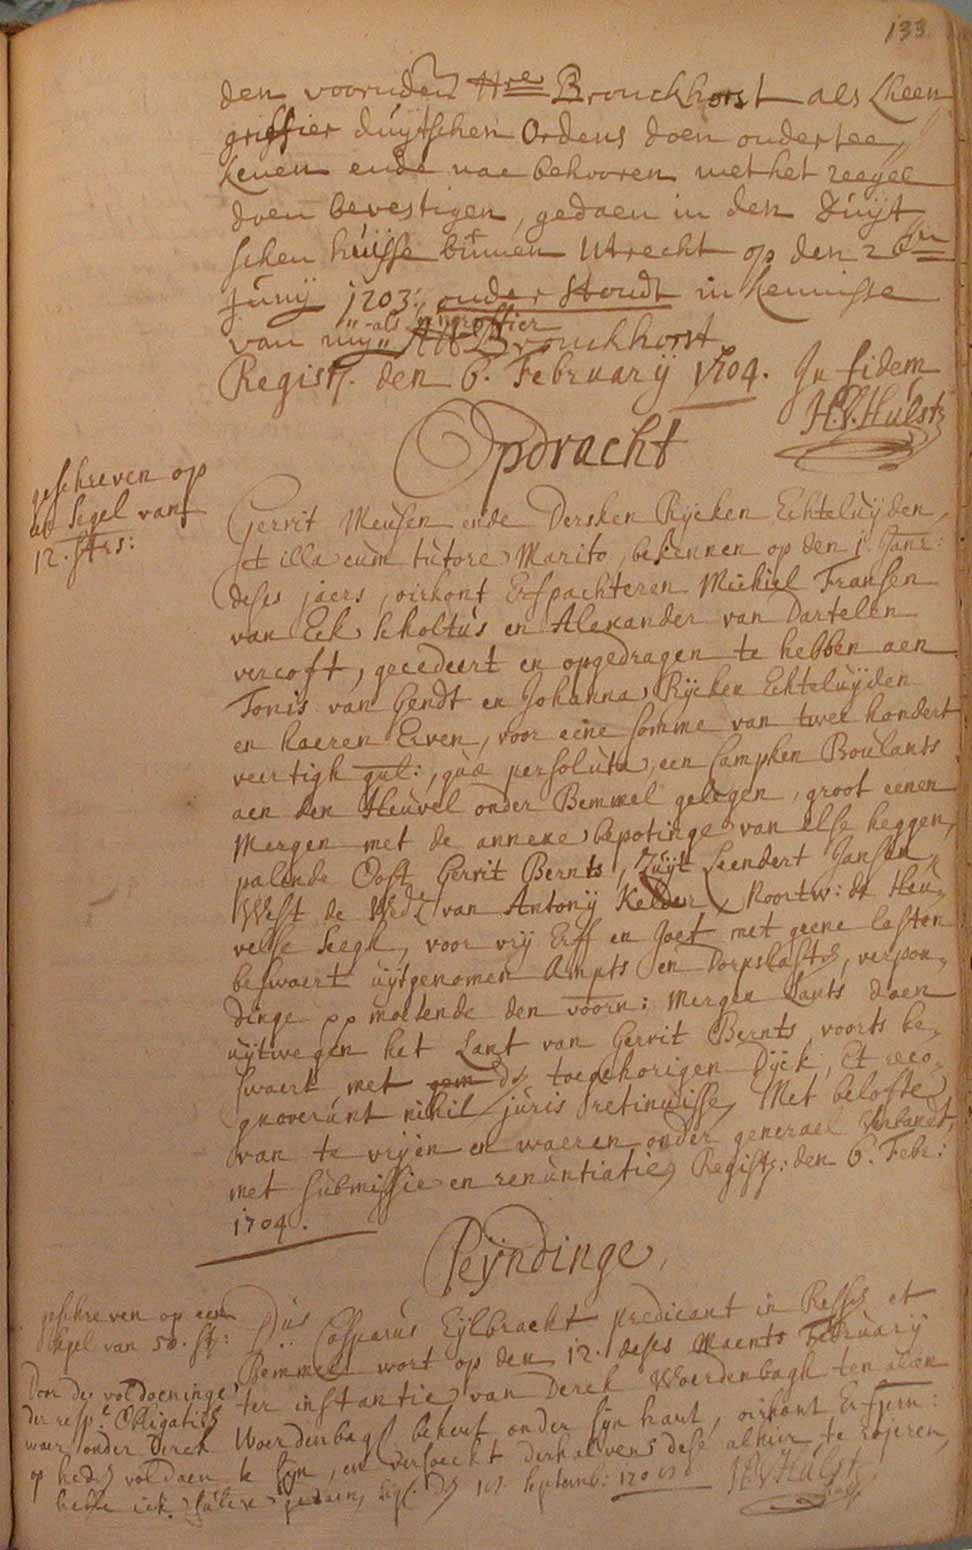 133
den voornden Hre Bronckhorst als Leen
griffier duytschen Ordens doen ondertee
kenen ende nae behooren met het zeegel
doen bevestigen, gedaen in den Duyt
schen huijsse binnen Utrecht op den 26en
Junij 1703:, onder stondt in kennisse
van mij als griffier Bronckhorst
Registr. den 6. February 1704. In fidem
H.V.Hulst
Opdracht
geschreven op
een Segel van
12. strs:
Gerrit Meusen ende Dersken Rycken Echteluyden
et illa cum tutore Marito, bekennen op den 1. Janr:
deses jaers, oirkont Erfpachteren Michiel Fransen
van Eck scholtus en Alexander van Dartelen
vercoft, gecedeert en opgedragen te hebben aen
Tonis van Gendt en Johanna Rycken Echteluyden
en haeren Erven, voor eene somme van twee hondert
veertigh gul:, quae persoluta, een Campken Boulants
aen den Heuvel onder Bemmel gelegen, groot eenen
Mergen met de annexe bepotinge van else heggen,
palende Oost Gerrit Bernts, Zuyt Leendert Jansen
West de Wed. van Antony Kelder, Noortw: de Heu-
velse Seegh, voor vry Erff en Goet met geene lasten
beswaert uytgenomen Ampts en Dorpslasten, verpon-
dinge pp moetende den voorn: Mergen Lants daen
uytwegen het Lant van Gerrit Bernts, voorts be-
swaert met den toebehorigen Dyck, Et reco-
gnoverunt nihil juris retinuisse, Met belofte
van te vryen en waeren onder generael Verbandt,
met submissie en renuntiatie, Registr: den 6. Febr:
1704.
Peyndinge
geschreven op een
Segel van 50. St:
Dus Casparus Eylbracht predicant in Ressen et
Bemmel wort op den 12. deses Maents February
ter instantie van Derck Woerdenbagh ten alsen
Door de voldoeninge
der resp.e Obligatien
waer onder Derck Woerdenbagh bekent onder syn hant, oirkont Erfpm:
op heden voldaen te syn, en versoeckt derhalven dese alhier te rojeren,
hebbe ick sulcx gedaen, sig: den Septemb: 170 H.V.Hulst